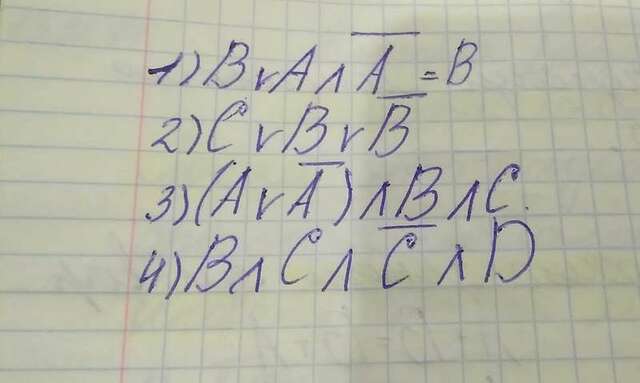 1) B v A ∧ A̅ = B
2) C v B v B̅
3) (A v A̅) ∧ B ∧ C.
4) B ∧ C ∧ C̅ ∧ D